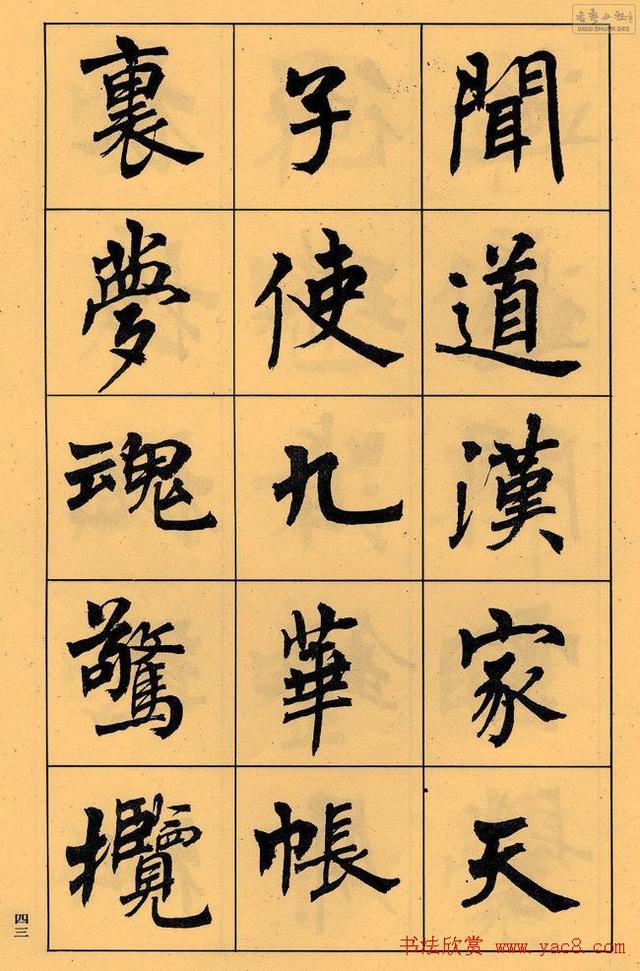 聞道漢家天
子使九華帳
裏夢魂驚攬
四三
书法欣赏 www.yac8.com
WWW.SHUFR.ORG